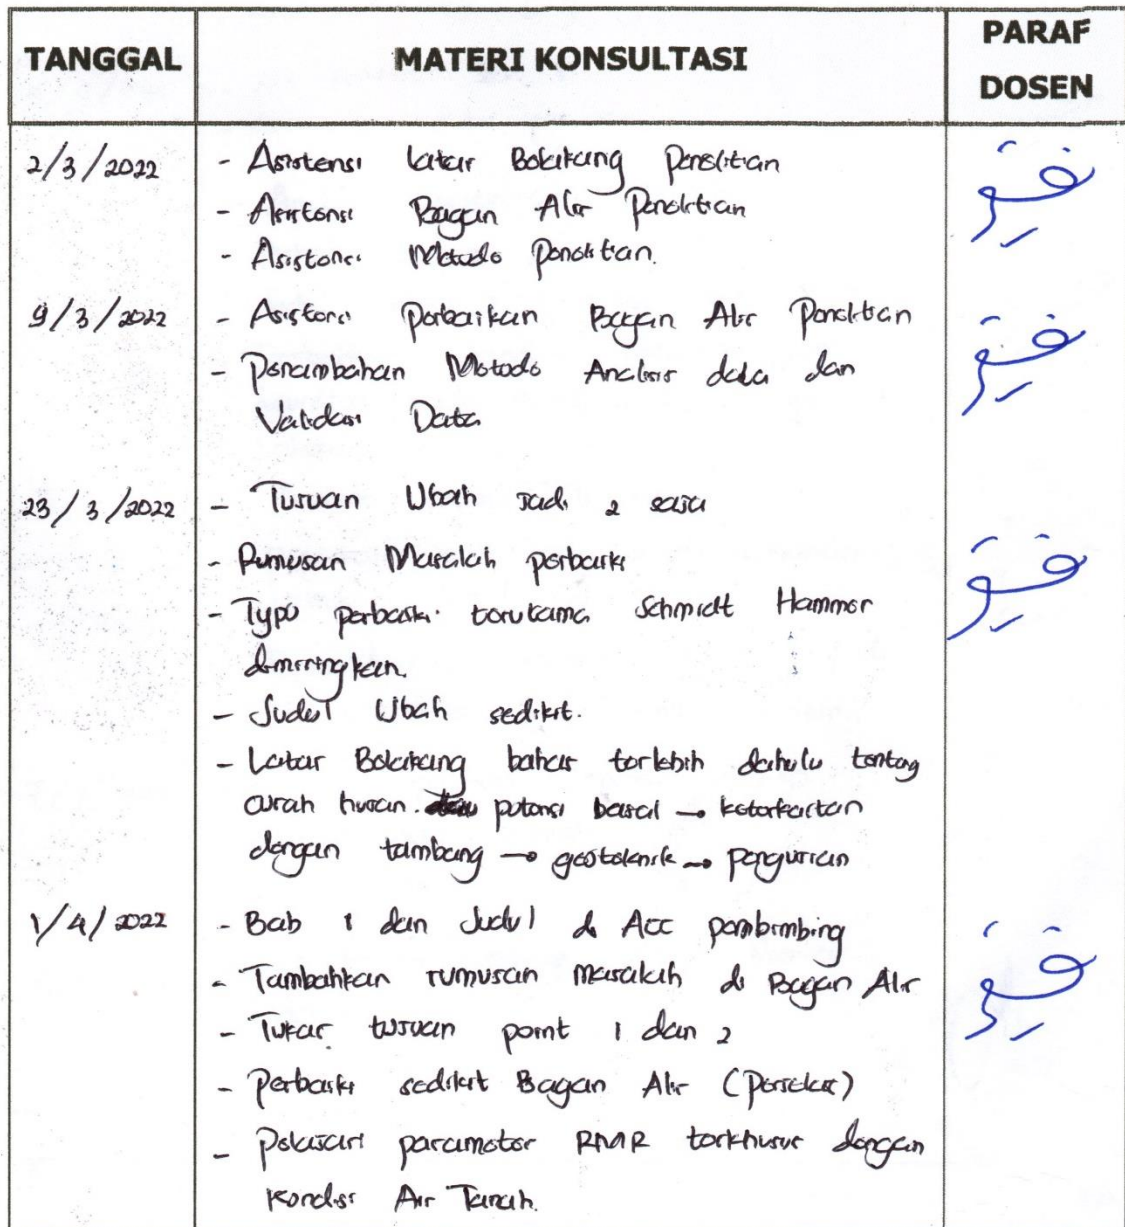 TANGGAL
MATERI KONSULTASI
PARAF
DOSEN
2/3/2022
- Asistensi latar Belakang Penelitian
- Asistensi Bagan Alir Penelitian
- Asistensi Metode Penelitian.
9/3/2022
- Asistensi Perbaikan Bagan Alir Penelitian
- Penambahan Metode Analisis data dan
Validasi Data
23/3/2022
- Tujuan Ubah jadi 2 saja
- Rumusan Masalah perbaiki
- Typo perbaiki terutama Schmidt Hammer
dimiringkan.
- Judul Ubah sedikit.
- Latar Belakang bahas terlebih dahulu tentang
curah hujan. potensi basal → keterkaitan
dengan tambang → geoteknik → pengujian
1/4/2022
- Bab 1 dan Judul di Acc pembimbing
- Tambahkan rumusan masalah di Bagan Alir
- Tukar tujuan point 1 dan 2
- Perbaiki sedikit Bagan Alir
- Pelajari parameter RMR terkhusus dengan
Kondisi Air Tanah.